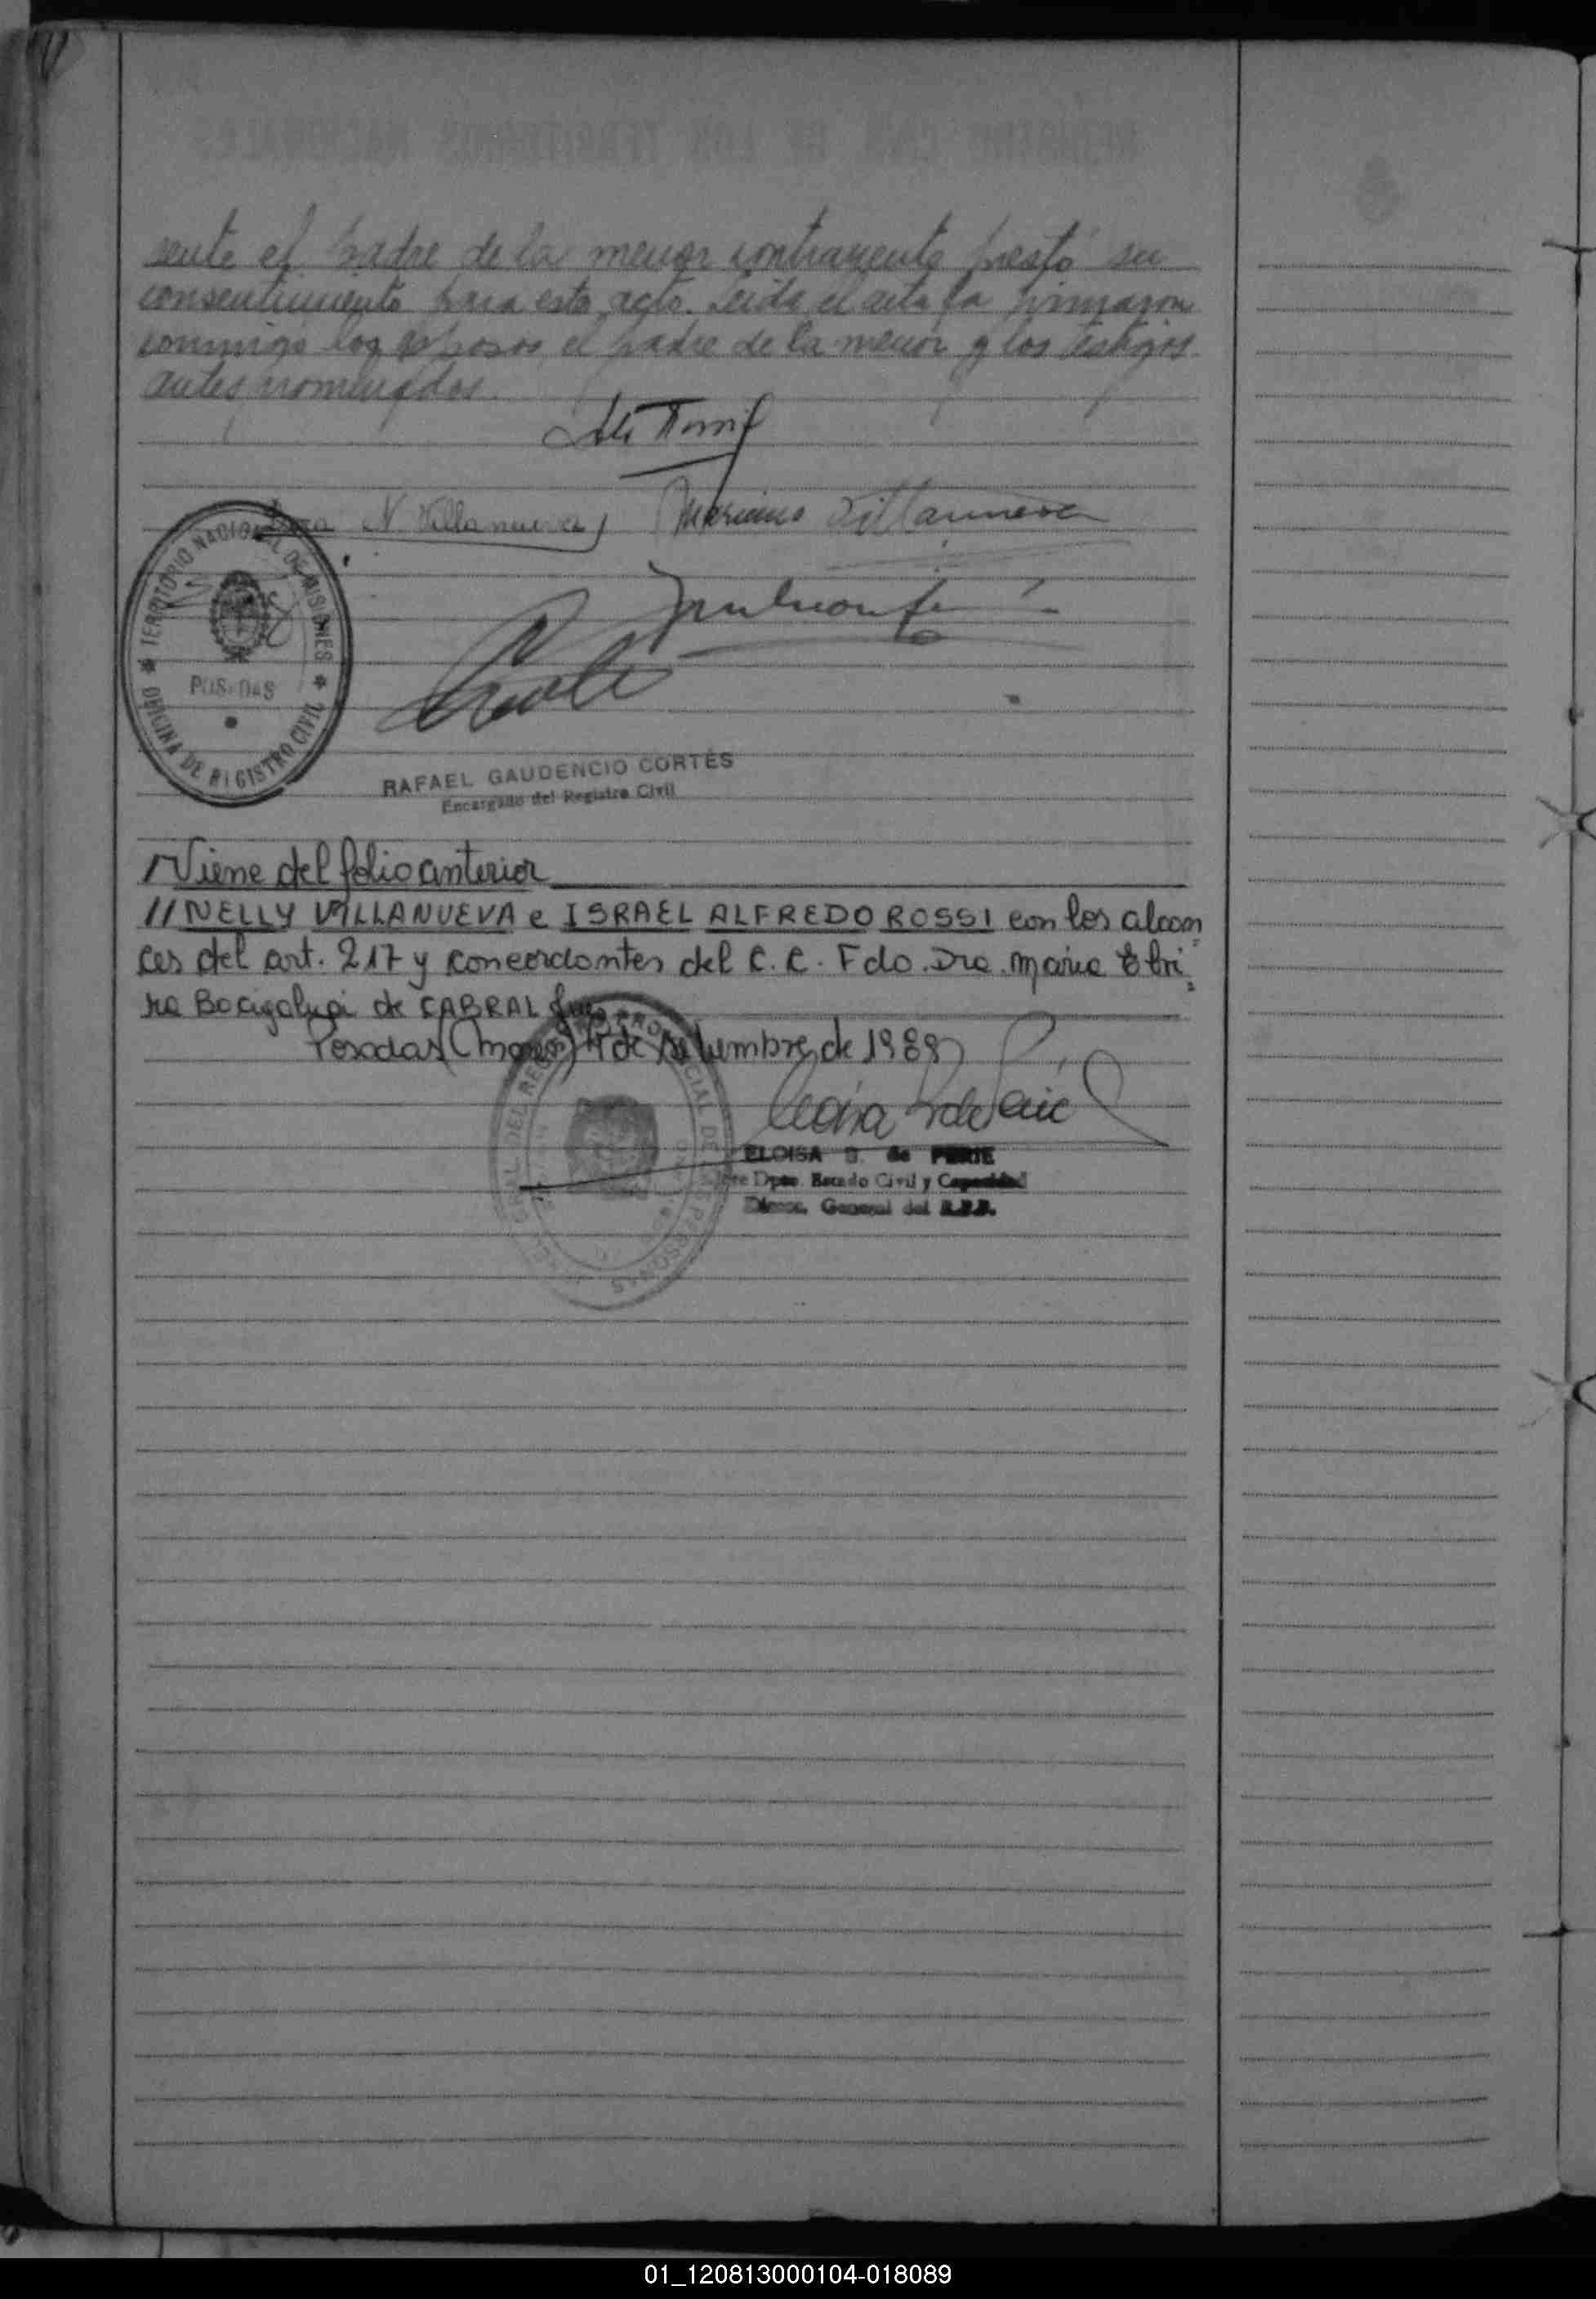 sente el padre de la menor contrayente prestó su
consentimiento para este acto. Leida el acta la firmaron
conmigo los esposos, el padre de la menor y los testigos
antes nombrados.
N Villanueva Mariano Villanueva
TERRITORIO NACIONAL DE MISIONES
POSADAS
OFICINA DE REGISTRO CIVIL
RAFAEL GAUDENCIO CORTÉS
Encargado del Registro Civil
Viene del folio anterior
//NELLY VILLANUEVA e ISRAEL ALFREDO ROSSI con los alcan
ces del art. 217 y concordantes del C.C. Fdo. Dra. María Elvi
ra Bacigalupi de CABRAL Juez
Posadas, (Mnes) 4 de Setiembre, de 1989
ELOISA B. de
Dpto. Estado Civil y Capacidad
Direcc. General del R.P.P.
01_120813000104-018089